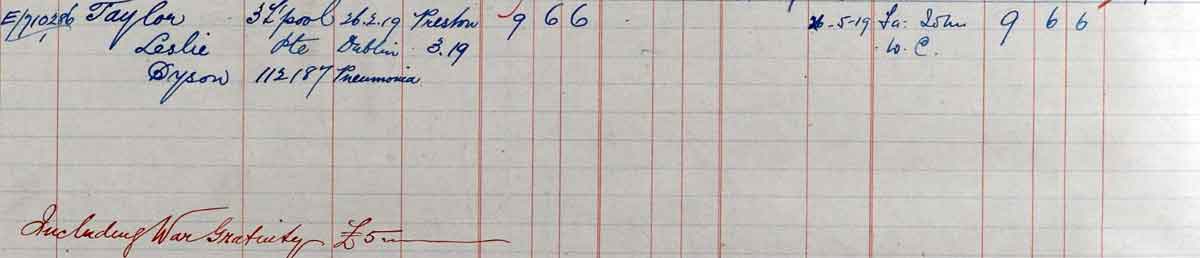 E/710286 Taylor 3 L'pool 26.2.19 Preston 9 6 6 26-5-19 Fa: John 9 6 6
Leslie Pte Dublin 3.19 W. C.
Dyson 112187 Pneumonia
Including War Gratuity £5